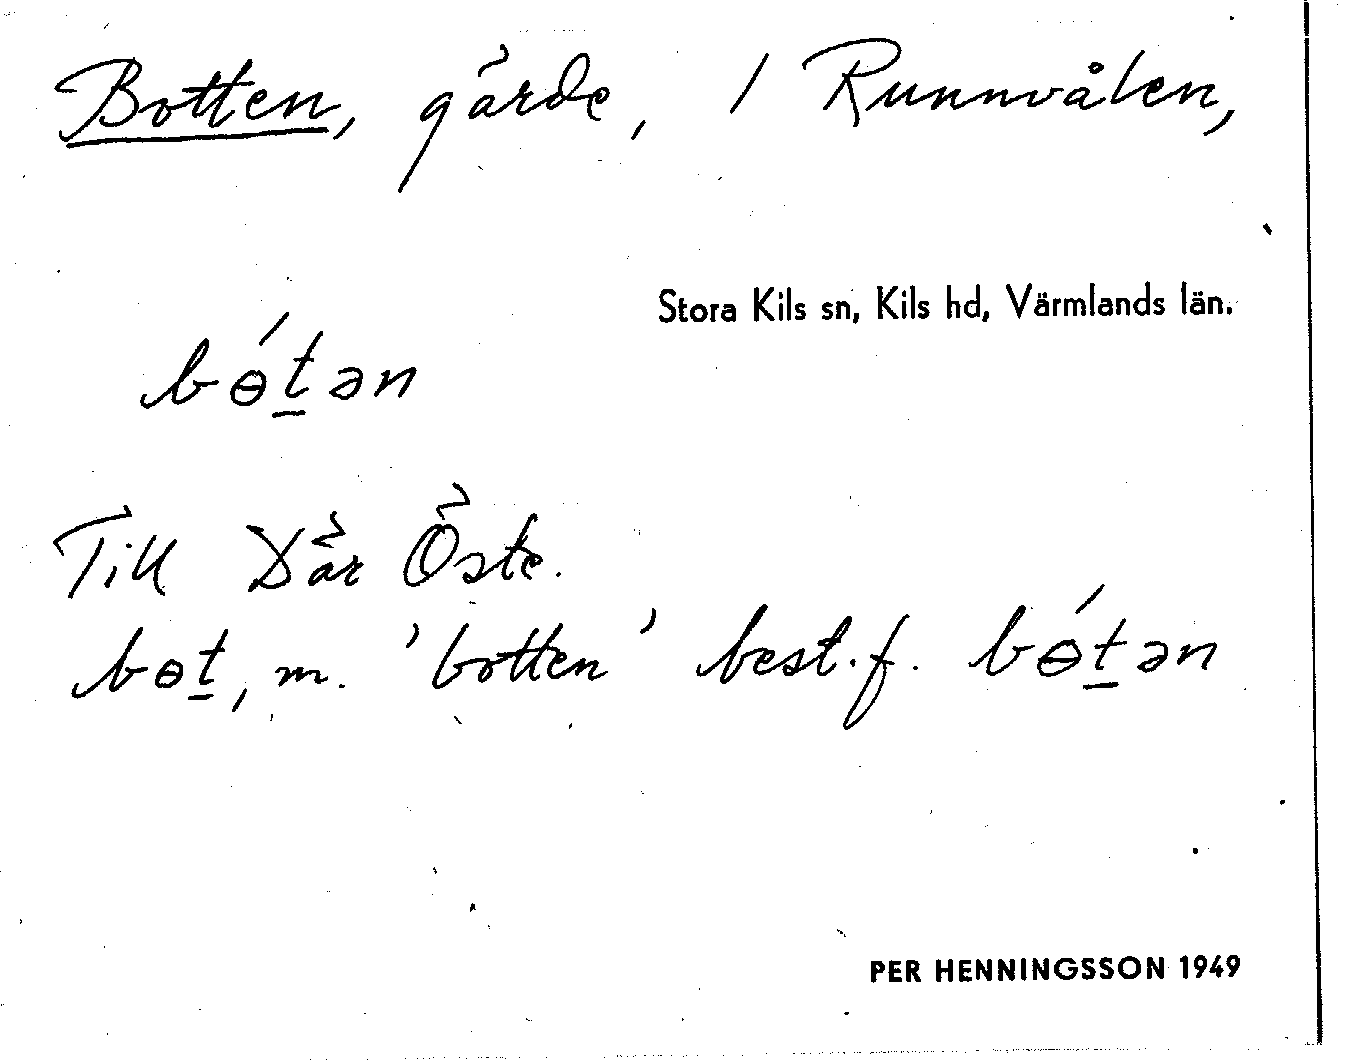 Botten, gärde, 1 Runnvålen,
Stora Kils sn, Kils hd, Värmlands län.
bɵ́t̲ən
Till Där Öste.
bɵt̲, m. 'botten' best.f. bɵ́t̲ən
PER HENNINGSSON 1949